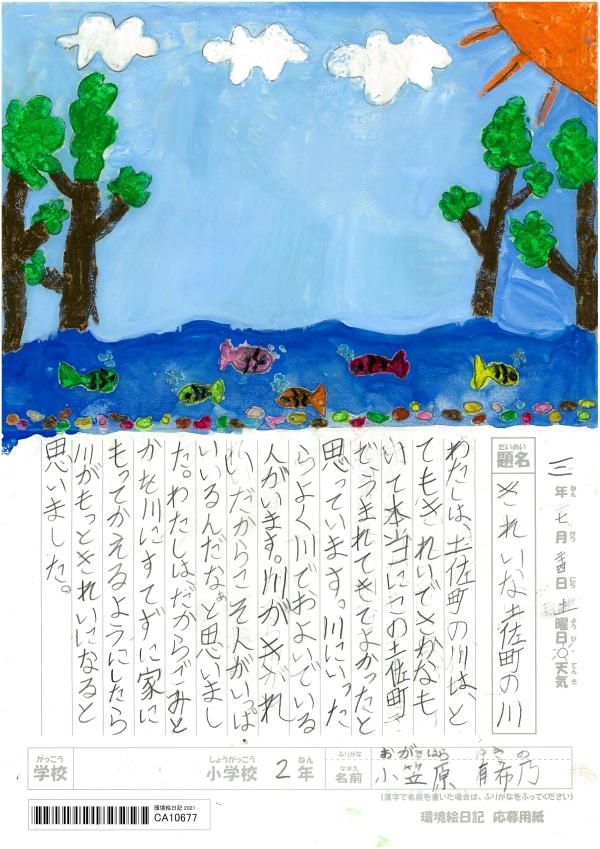 三年七月二十四日土曜日天気
ねん がつ にち よう び てん き
だいめい
題名 きれいな土佐町の川
わたしは、土佐町の川は、と
てもきれいでさかなも
いて本当にこの土佐町
でうまれてきてよかったと
思っています。川にいった
らよく川でおよいでいる
人がいます。川がきれ
いだからこそ人がいっぱ
いいるんだなぁと思いまし
た。わたしはだからごみと
かを川にすてずに家に
もってかえるようにしたら
川がもっときれいになると
思いました。
がっこう しょうがっこう ねん ふりがな おがさはら ゆきの
学校 小学校 2年 なまえ 名前 小笠原 有希乃
(漢字で名前を書いた場合は、ふりがなをふってください)
環境絵日記 応募用紙
環境絵日記 2021
CA10677